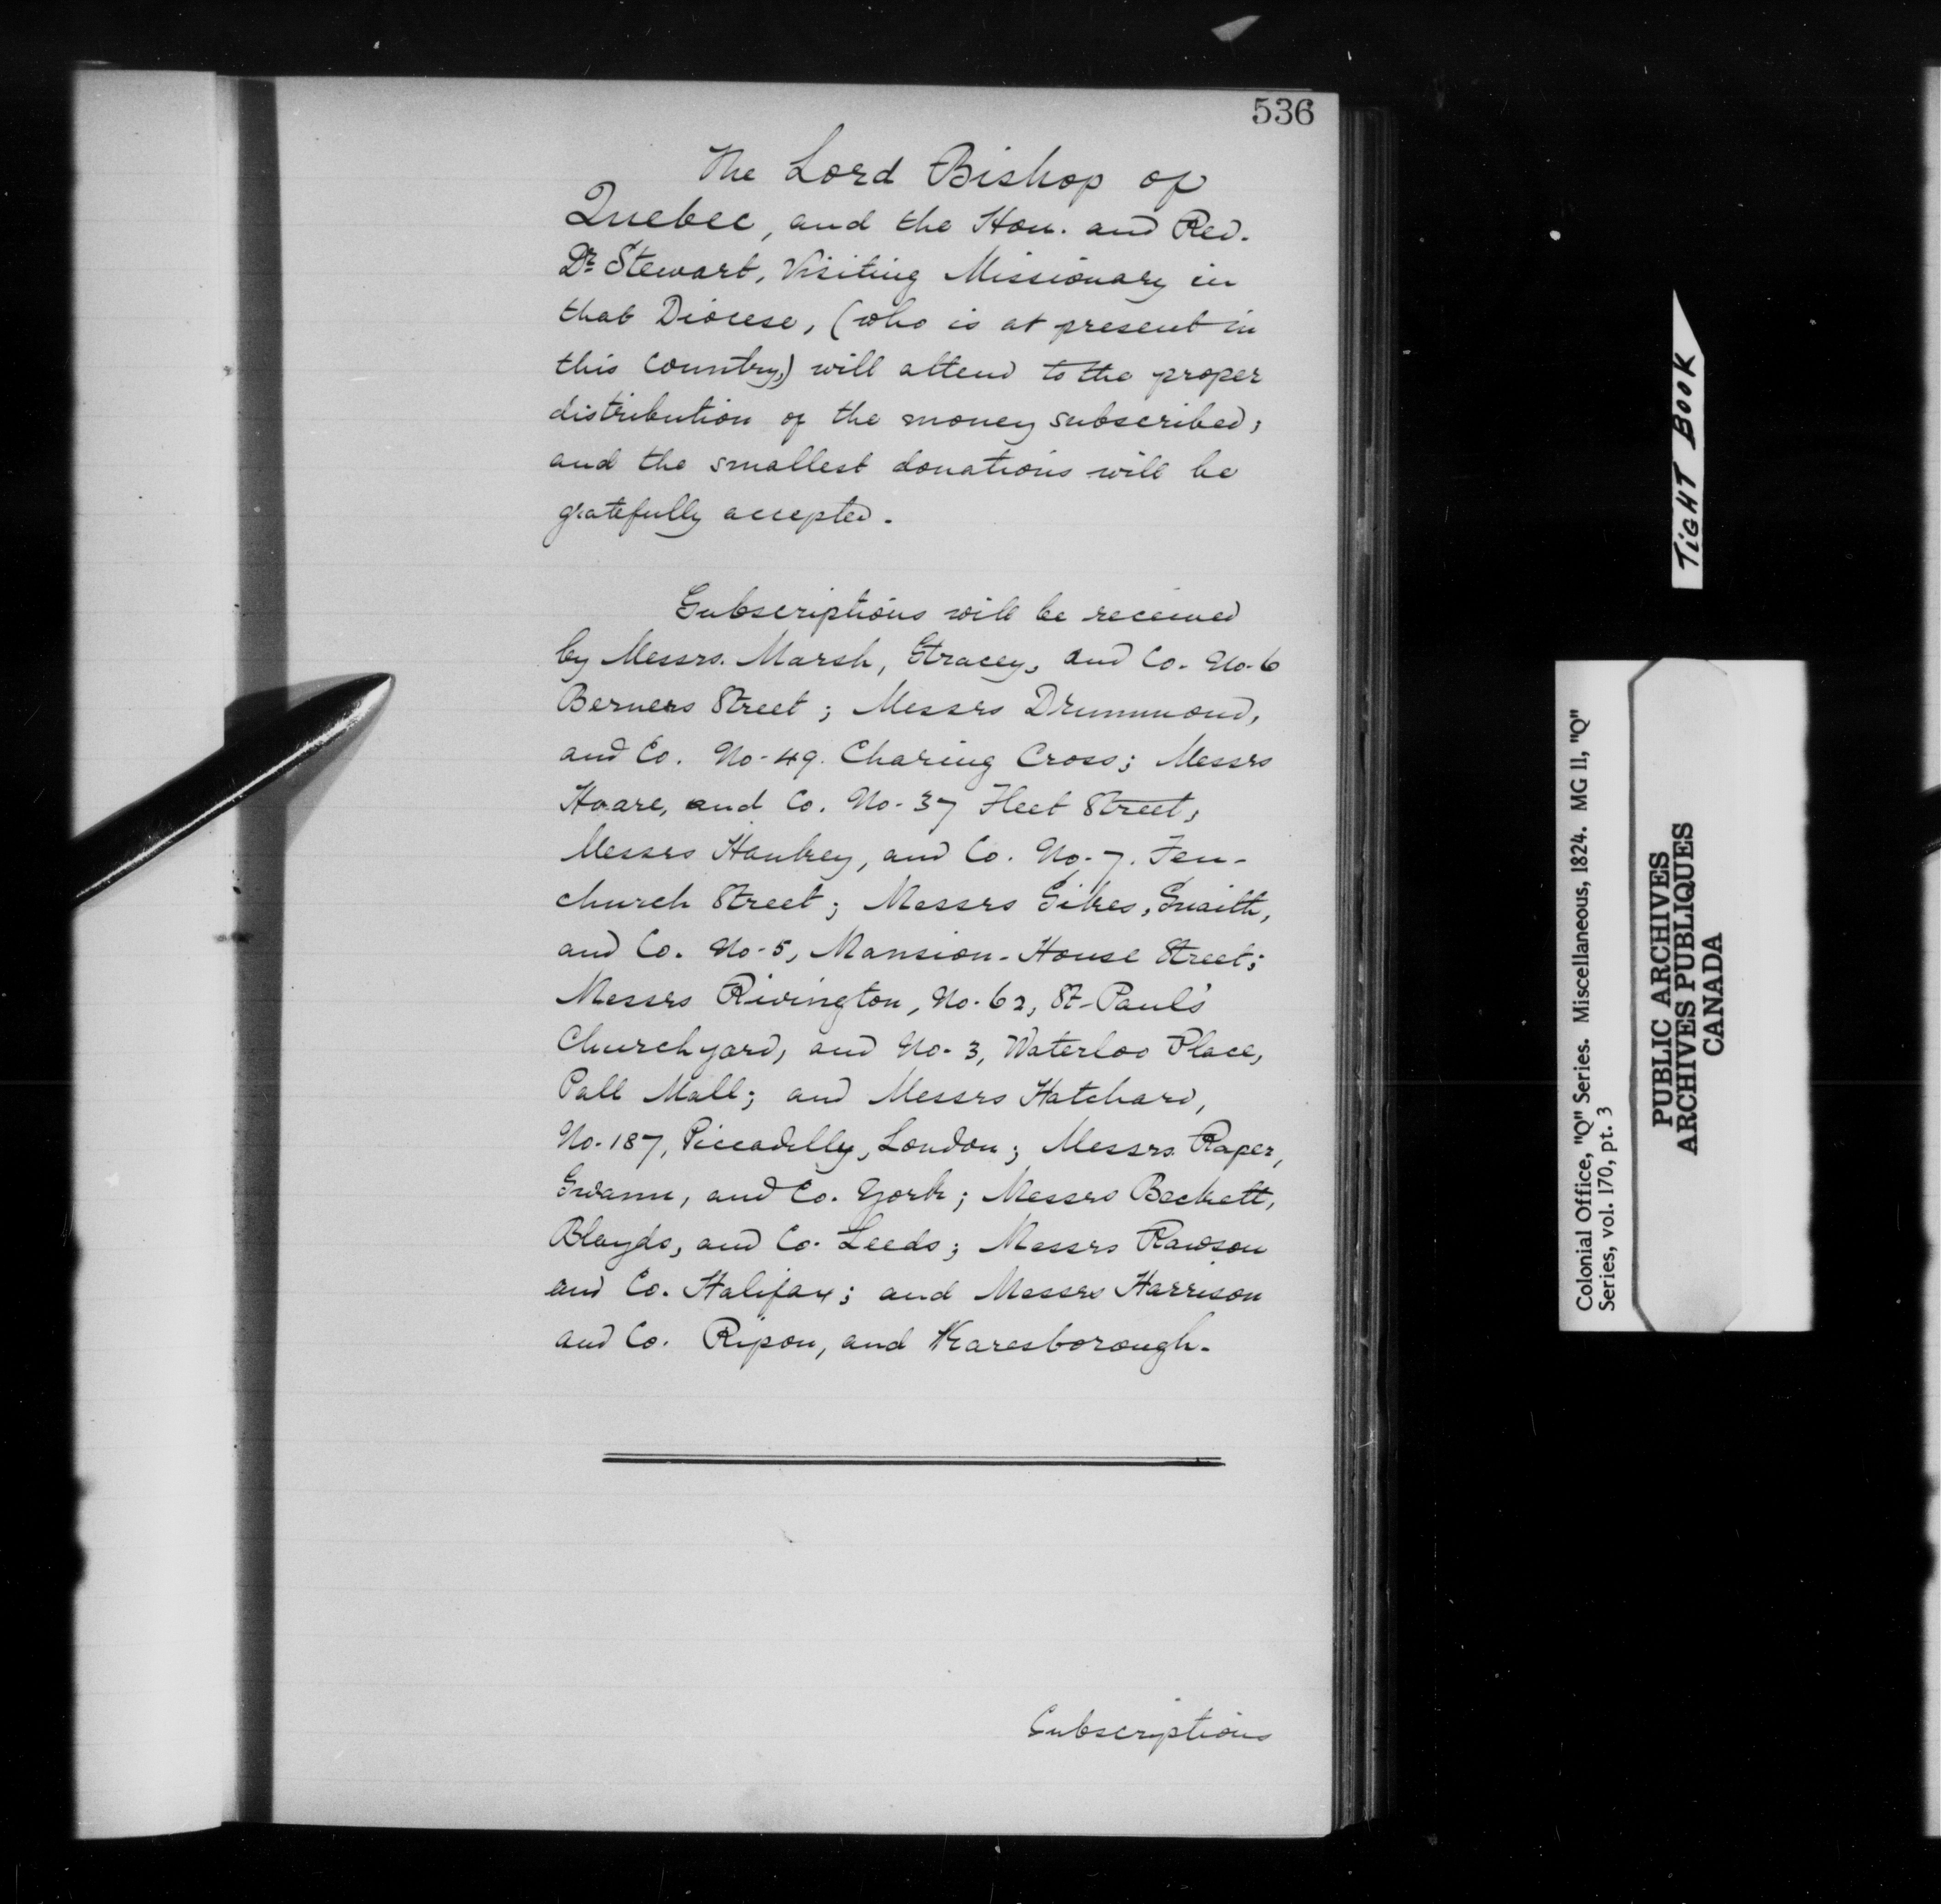 536
The Lord Bishop of
Quebec, and the Hon. and Rev.
Dr. Stewart, Visiting Missionary in
that Diocese, (who is at present in
this Country,) will attend to the proper
distribution of the money subscribed;
and the smallest donations will be
gratefully accepted.
Subscriptions will be received
by Messrs. Marsh, Stracey, and Co. No. 6
Berners Street; Messrs Drummond,
and Co. No. 49. Charing Cross; Messrs
Hoare, and Co. No. 37 Fleet Street,
Messrs Hankey, and Co. No. 7. Fen-
church Street; Messrs Sikes, Snaith,
and Co. No. 5, Mansion-House Street;
Messrs Rivington, No. 62, St. Paul's
Churchyard, and No. 3, Waterloo Place,
Pall Mall; and Messrs Hatchard,
No. 187, Piccadilly, London; Messrs. Raper,
Swann, and Co. York; Messrs Beckett,
Blayds, and Co. Leeds; Messrs Rawson
and Co. Halifax; and Messrs Harrison
and Co. Ripon, and Knaresborough.
Subscriptions
TIGHT BOOK
Colonial Office, "Q" Series. Miscellaneous, 1824. MG 11, "Q"
Series, vol. 170, pt. 3
PUBLIC ARCHIVES
ARCHIVES PUBLIQUES
CANADA